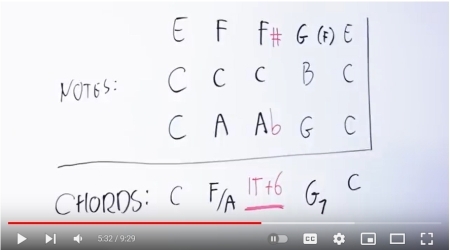 E F F# G (F) E
NOTES: C C C B C
C A Ab G C
CHORDS: C F/A IT+6 G7 C
5:32 / 9:29
CC